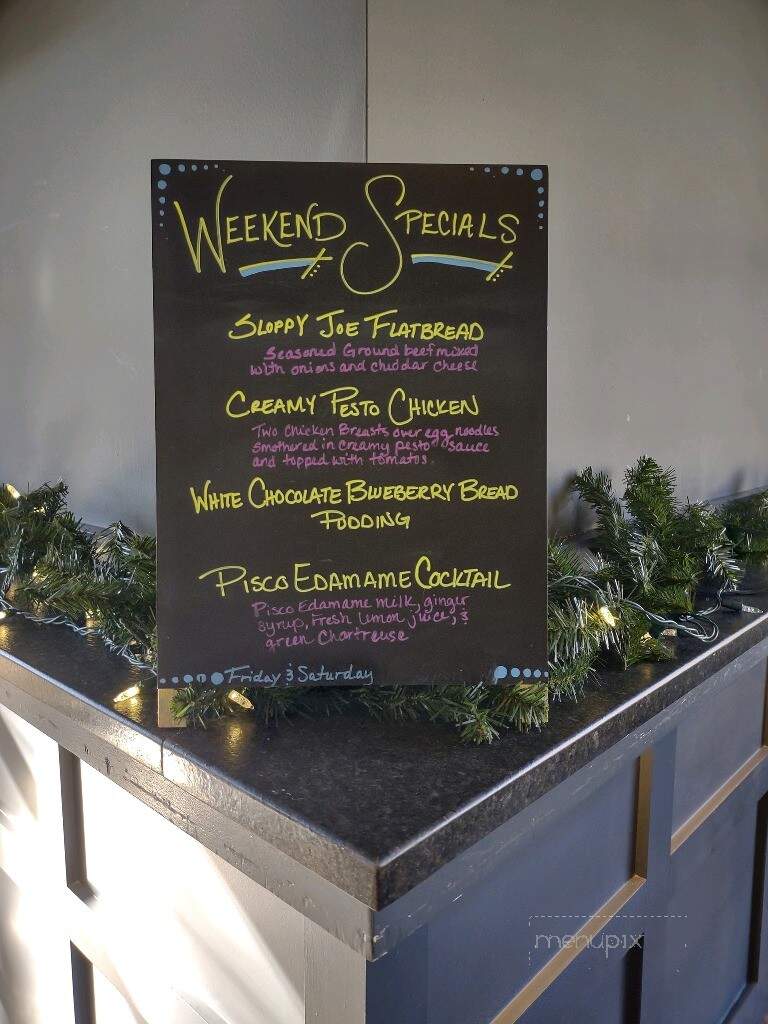 WEEKEND SPECIALS
SLOPPY JOE FLATBREAD
Seasoned Ground beef mixed
with onions and cheddar cheese
CREAMY PESTO CHICKEN
Two Chicken Breasts over egg noodles
smothered in creamy pesto sauce
and topped with tomatos.
WHITE CHOCOLATE BLUEBERRY BREAD
PUDDING
PISCO EDAMAME COCKTAIL
Pisco Edamame milk, ginger
syrup, Fresh lemon juice, &
green Chartreuse
Friday & Saturday
menupix